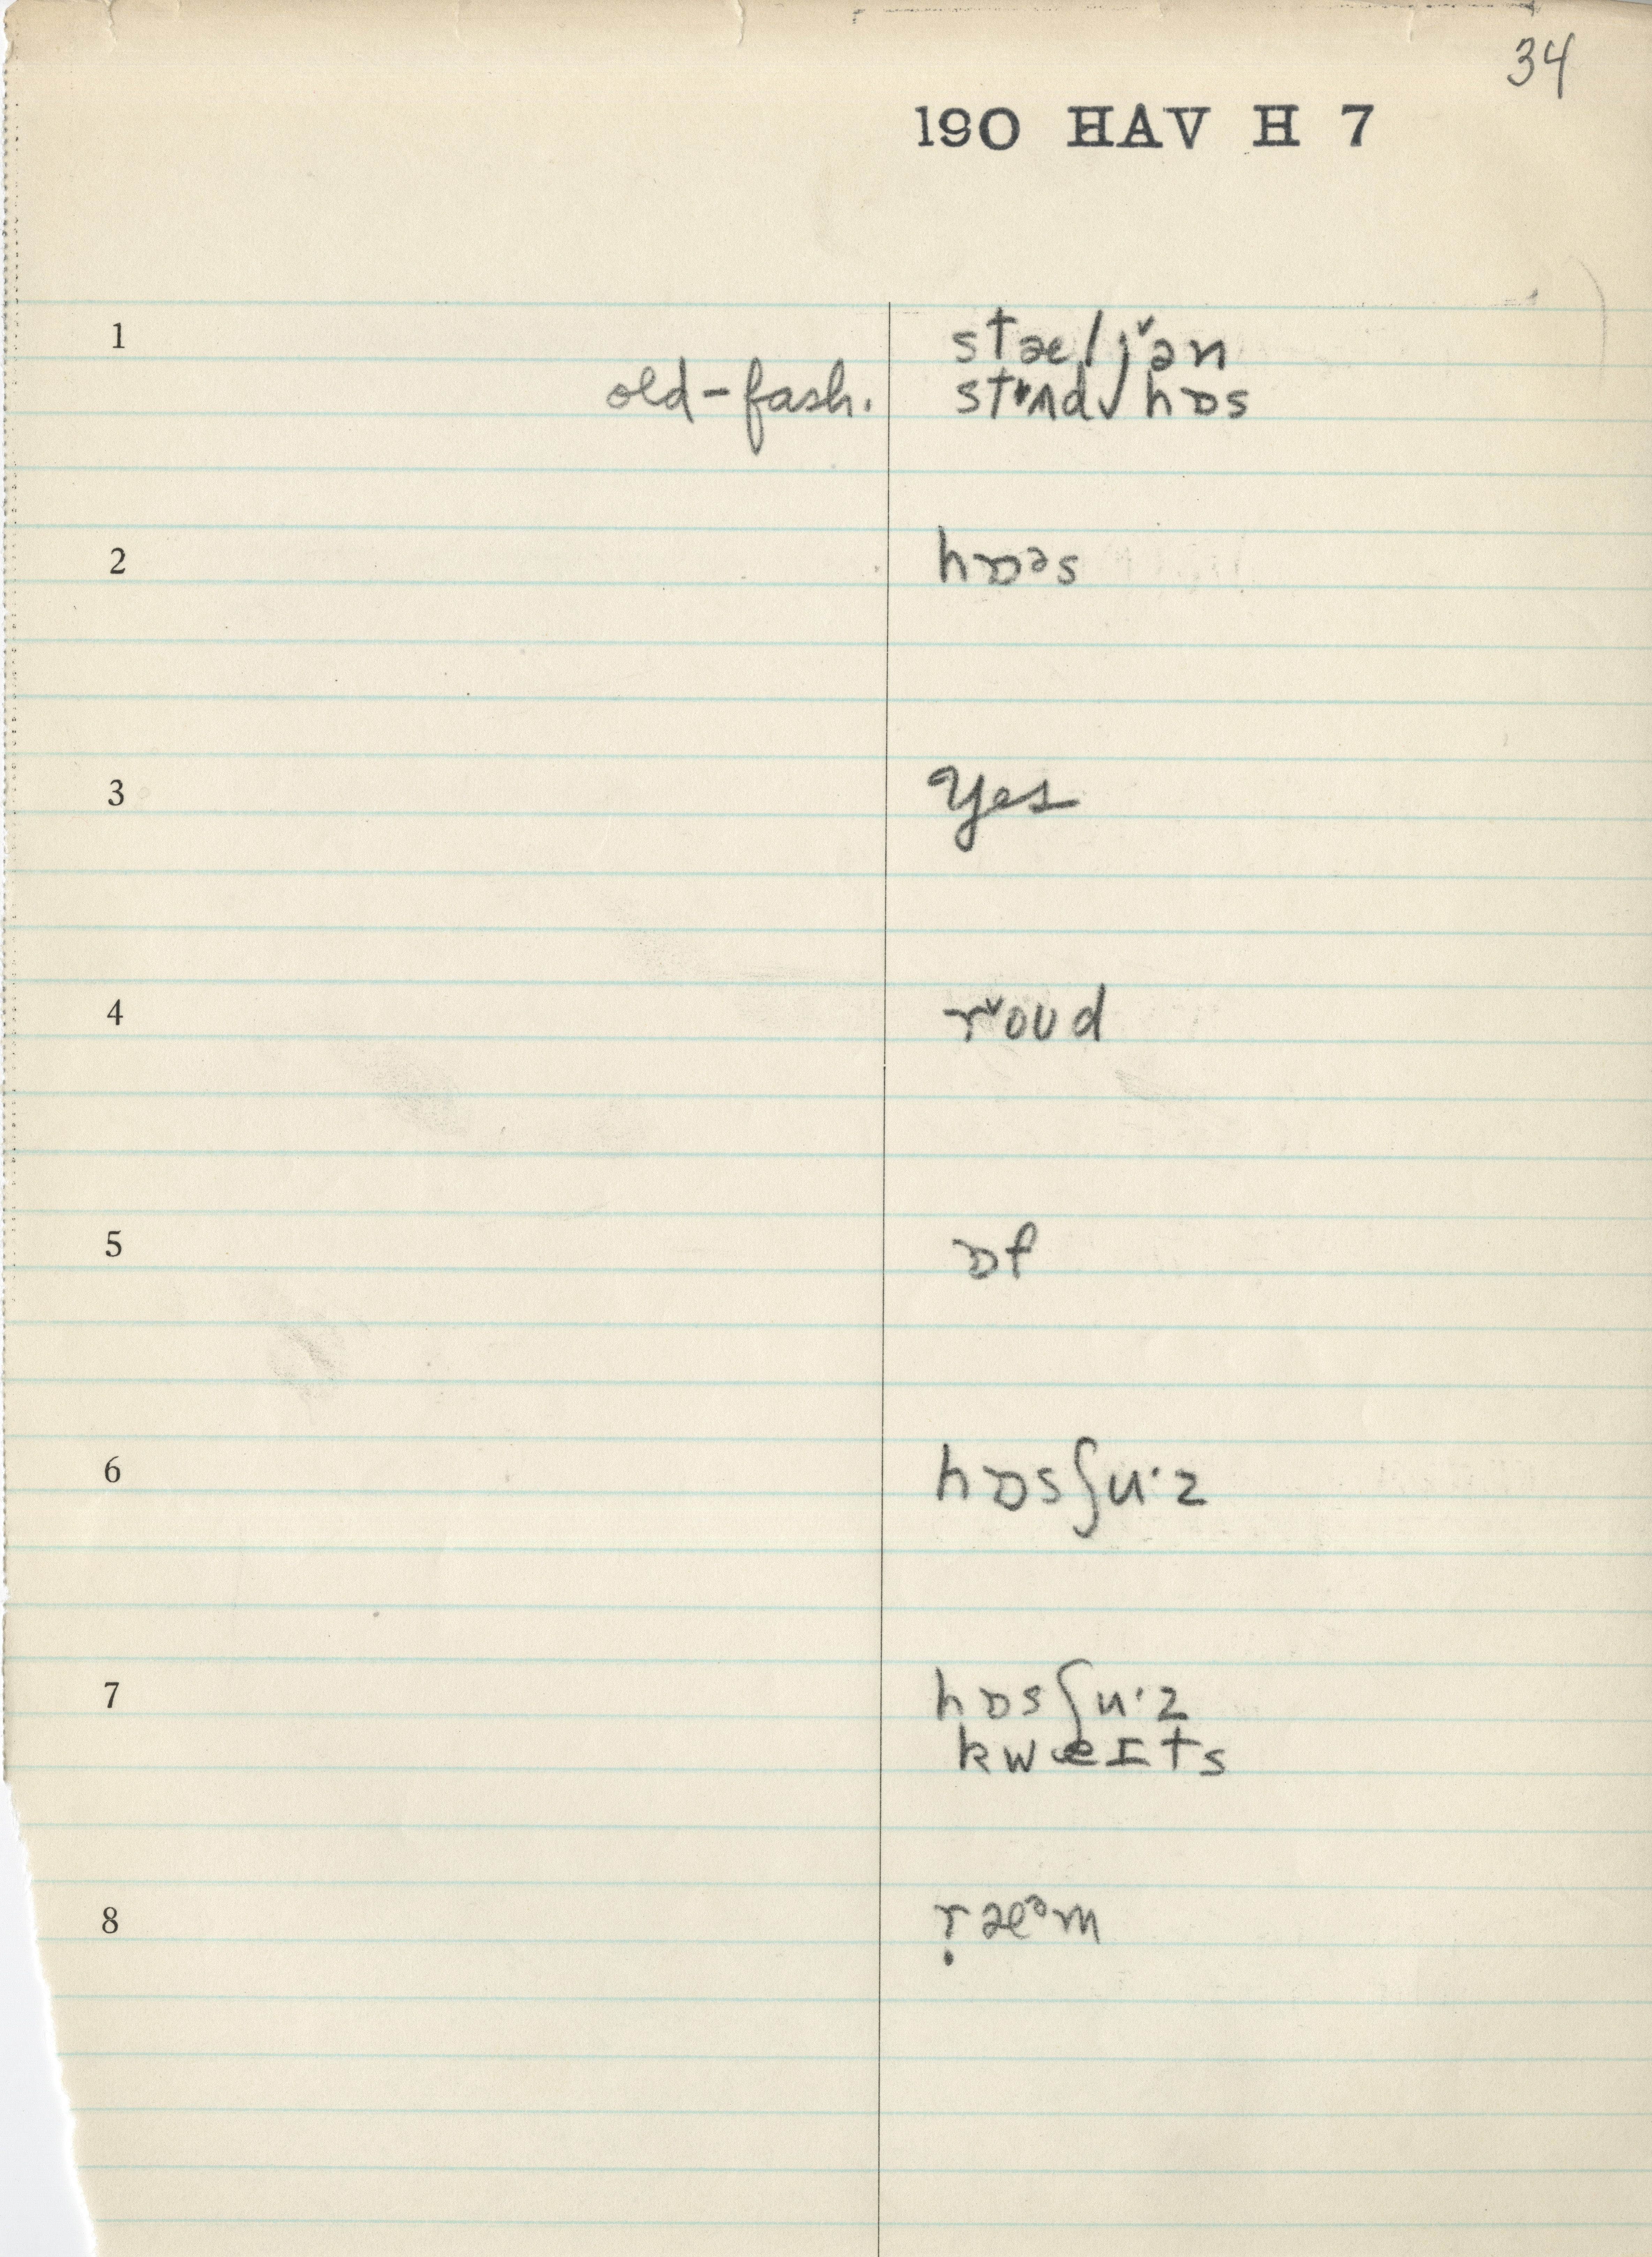 34
190 HAV H 7
1 stæljˇən
old-fash. stʌdˬhɒs
2 hɒᵊs
3 Yes
4 rˇoud
5 ɒf
6 hɒsʃu·z
7 hɒsʃu·z
kweɪts
8 ṛæᵊm